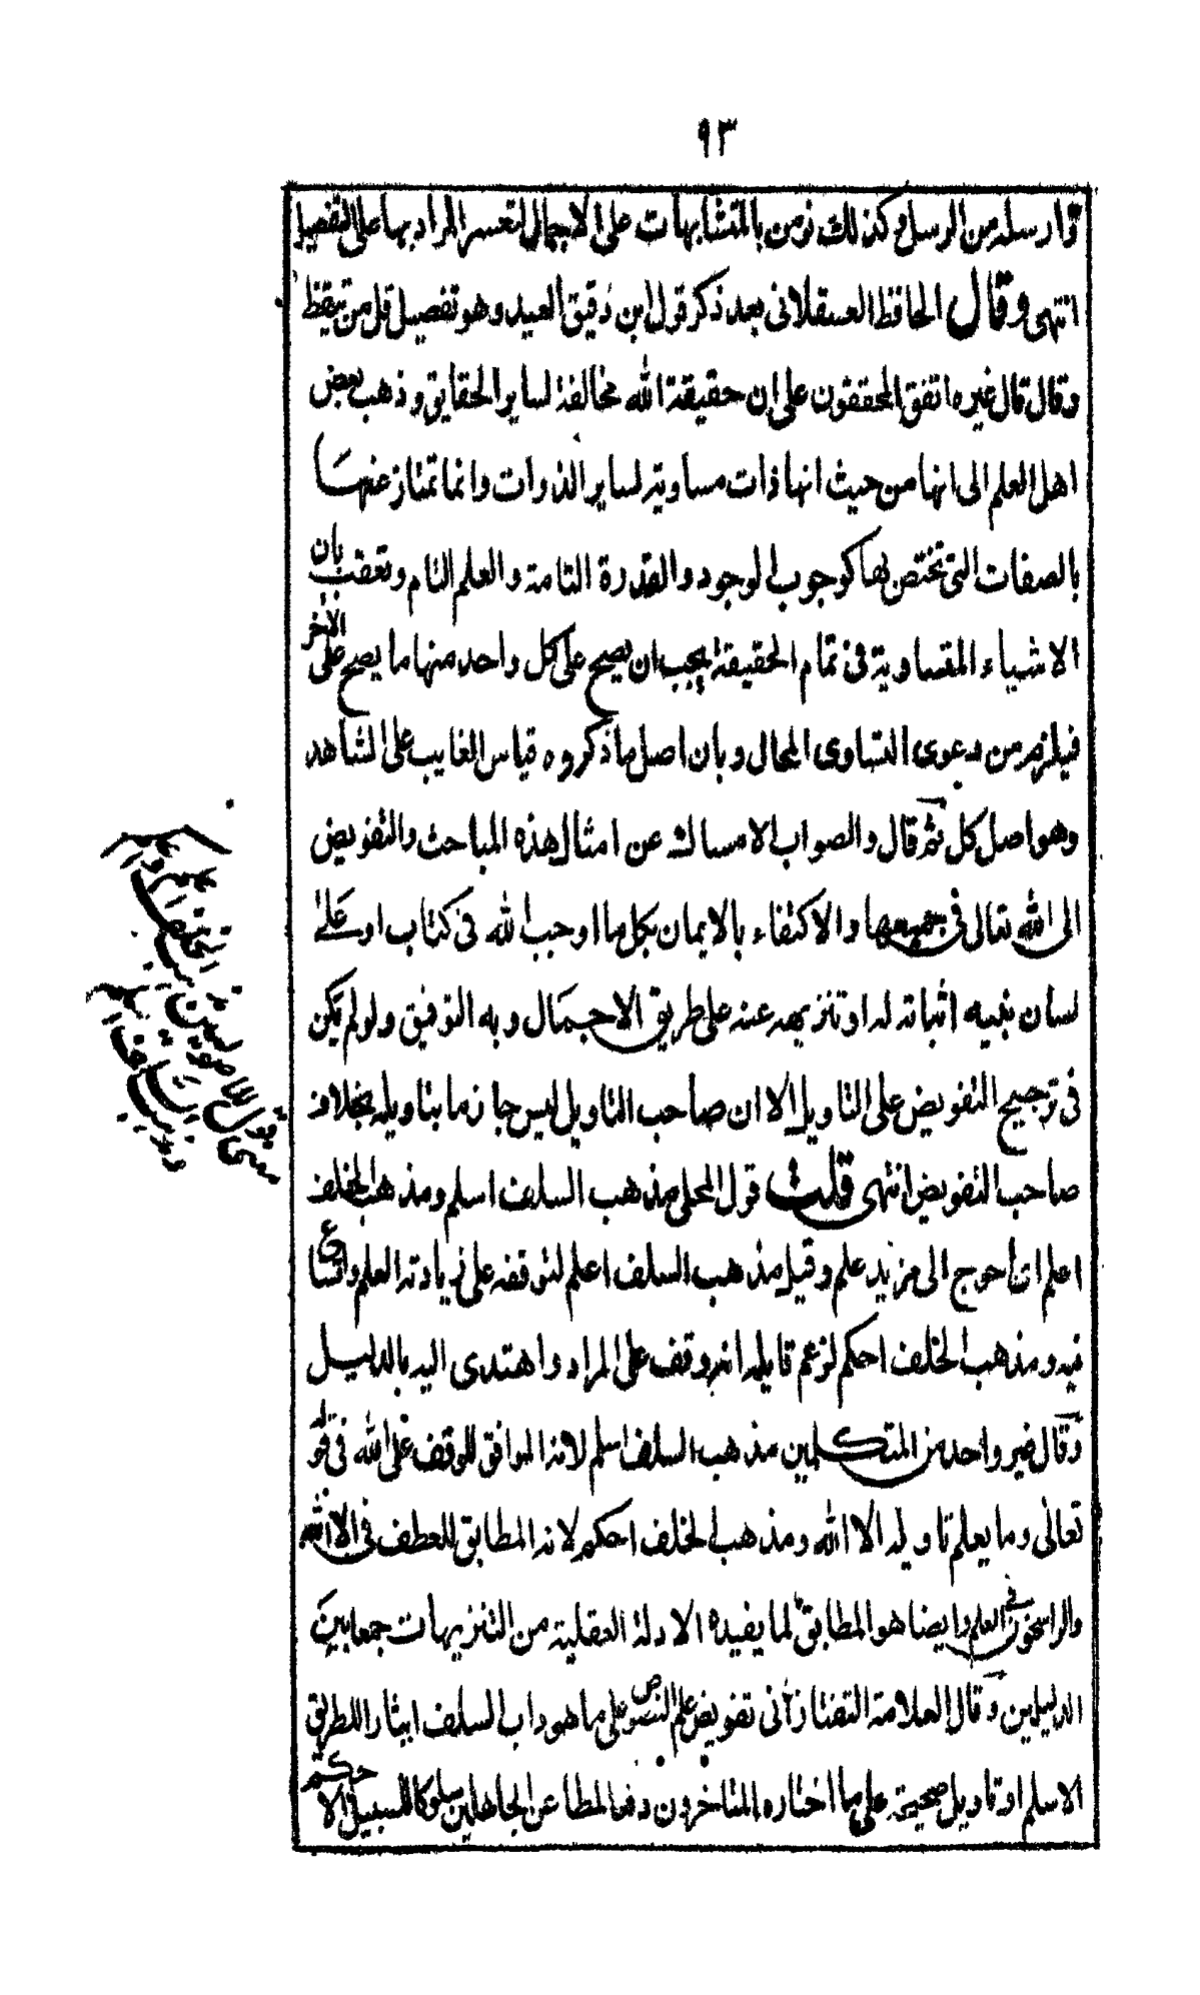 ٩٣
وارسله من الرسل وكذلك نومن بالمتشابهات على الاجمال لتعسر المراد بها على التفصيل
انتهى وقال الحافظ العسقلانى بعد ذكر قول ابن دقيق العيد وهو تفصيل قل من تيقظ
وقال قال غيره اتفق المحققون على ان حقيقة الله مخالفة لساير الحقايق وذهب بعض
اهل العلم الى انها من حيث انها ذات مساوية لساير الذوات وانما تمتاز عنها
بالصفات التى تختص بها كوجوب الوجود والقدرة التامة والعلم التام وتعقب بان
الاشياء المتساوية فى تمام الحقيقة يجب ان يصح على كل واحد منها ما يصح على الاخر
فيلزم من دعوى التساوى المحال وبان اصل ما ذكروه قياس الغايب على الشاهد
وهو اصل كل ثم قال والصواب الامساك عن امثال هذه المباحث والتفويض
الى الله تعالى فى جميعها والاكتفاء بالايمان بكل ما اوجب الله فى كتاب او على
لسان نبيه اثباته له او تنزيهه عنه على طريق الاجمال وبه التوفيق ولو لم يكن
فى ترجيح التفويض على التاويل الا ان صاحب التاويل ليس جازما بتاويله بخلاف
صاحب التفويض انتهى قلت قول المحلى مذهب السلف اسلم ومذهب الخلف
اعلم اى احوج الى مزيد علم وقيل مذهب السلف اعلم لتوقفه على زيادة العلم واتساع
فيه ومذهب الخلف احكم لزعم قايله انه وقف على المراد واهتدى اليه بالدليل
وقال غير واحد من المتكلمين مذهب السلف اسلم لانه الموافق للوقف على الله فى قو
تعالى وما يعلم تاويله الا الله ومذهب الخلف احكم لانه المطابق للعطف فى الا الله
والراسخون فى العلم وايضا هو المطابق لما يفيده الادلة العقلية من التنزيهات جمعا بين
الدليلين وقال العلامة التفتازانى تفويض علم النصوص على ما هو داب السلف ايثارا للطريق
الاسلم او تاويل صحيحة على ما اختاره المتاخرون دفعا لمطاعن الجاهلين سلوكا للسبيل الاحكم